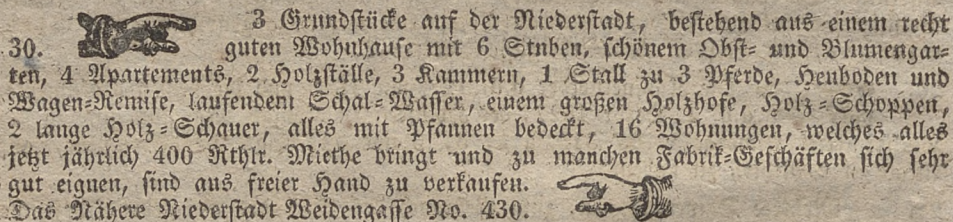 3 Grundstücke auf der Niederstadt, bestehend aus einem recht
30. guten Wohnhause mit 6 Stnben, schönem Obst- und Blumengar-
ten, 4 Apartements, 2 Holzställe, 3 Kammern, 1 Stall zu 3 Pferde, Heuboden und
Wagen-Remise, laufendem Schal-Wasser, einem großen Holzhofe, Holz-Schoppen,
2 lange Holz-Schauer, alles mit Pfannen bedeckt, 16 Wohnungen, welches alles
jetzt jährlich 400 Rthlr. Miethe bringt und zu manchen Fabrik-Geschäften sich sehr
gut eignen, sind aus freier Hand zu verkaufen.
Das Nähere Niederstadt Weidengasse No. 430.